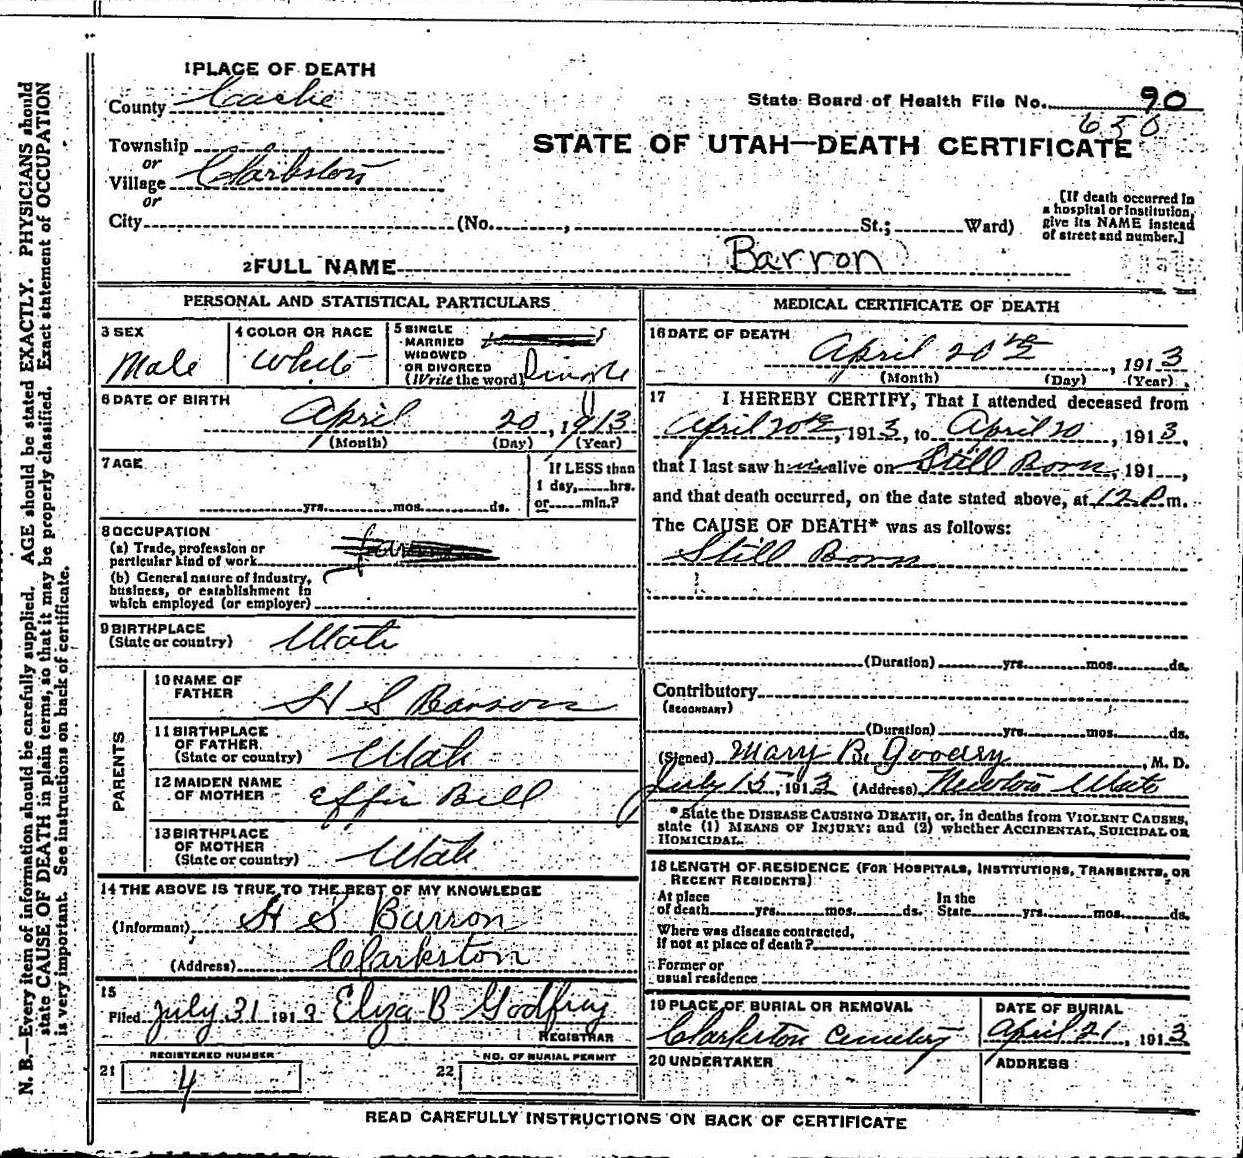 N. B.—Every item of information should be carefully supplied. AGE should be stated EXACTLY. PHYSICIANS should
state CAUSE OF DEATH in plain terms, so that it may be properly classified. Exact statement of OCCUPATION
is very important. See instructions on back of certificate.
1 PLACE OF DEATH
County Cache
State Board of Health File No. 90
650
Township
or
Village Clarkston
or
STATE OF UTAH—DEATH CERTIFICATE
City (No. , St.; Ward)
[If death occurred in
a hospital or institution,
give its NAME instead
of street and number.]
2 FULL NAME Barron
PERSONAL AND STATISTICAL PARTICULARS
3 SEX
Male
4 COLOR OR RACE
White
5 SINGLE
MARRIED
WIDOWED
OR DIVORCED
(Write the word) Single
6 DATE OF BIRTH
April 20, 1913
(Month) (Day) (Year)
7 AGE
yrs. mos. ds.
If LESS than
1 day, hrs.
or min.?
8 OCCUPATION
(a) Trade, profession or
particular kind of work
(b) General nature of industry,
business, or establishment in
which employed (or employer)
9 BIRTHPLACE
(State or country) Utah
PARENTS
10 NAME OF
FATHER H S Barron
11 BIRTHPLACE
OF FATHER
(State or country) Utah
12 MAIDEN NAME
OF MOTHER Effie Bell
13 BIRTHPLACE
OF MOTHER
(State or country) Utah
14 THE ABOVE IS TRUE TO THE BEST OF MY KNOWLEDGE
(Informant) H S Barron
(Address) Clarkston
15
Filed July 31 191 Eliza B Godfrey
REGISTRAR
REGISTERED NUMBER
21 4
NO. OF BURIAL PERMIT
22
MEDICAL CERTIFICATE OF DEATH
16 DATE OF DEATH
April 20th, 1913
(Month) (Day) (Year)
17 I HEREBY CERTIFY, That I attended deceased from
April 20th, 1913, to April 20, 1913,
that I last saw him alive on Still Born, 191 ,
and that death occurred, on the date stated above, at 12 P.m.
The CAUSE OF DEATH* was as follows:
Still Born
(Duration) yrs. mos. ds.
Contributory
(SECONDARY)
(Duration) yrs. mos. ds.
(Signed) Mary B. , M. D.
July 15, 1913 (Address) Newton Utah
*State the DISEASE CAUSING DEATH, or, in deaths from VIOLENT CAUSES,
state (1) MEANS OF INJURY; and (2) whether ACCIDENTAL, SUICIDAL OR
HOMICIDAL.
18 LENGTH OF RESIDENCE (FOR HOSPITALS, INSTITUTIONS, TRANSIENTS, OR
RECENT RESIDENTS)
At place
of death yrs. mos. ds.
In the
State yrs. mos. ds.
Where was disease contracted,
if not at place of death?
Former or
usual residence
19 PLACE OF BURIAL OR REMOVAL
Clarkston Cemetery
DATE OF BURIAL
April 21, 1913
20 UNDERTAKER
ADDRESS
READ CAREFULLY INSTRUCTIONS ON BACK OF CERTIFICATE